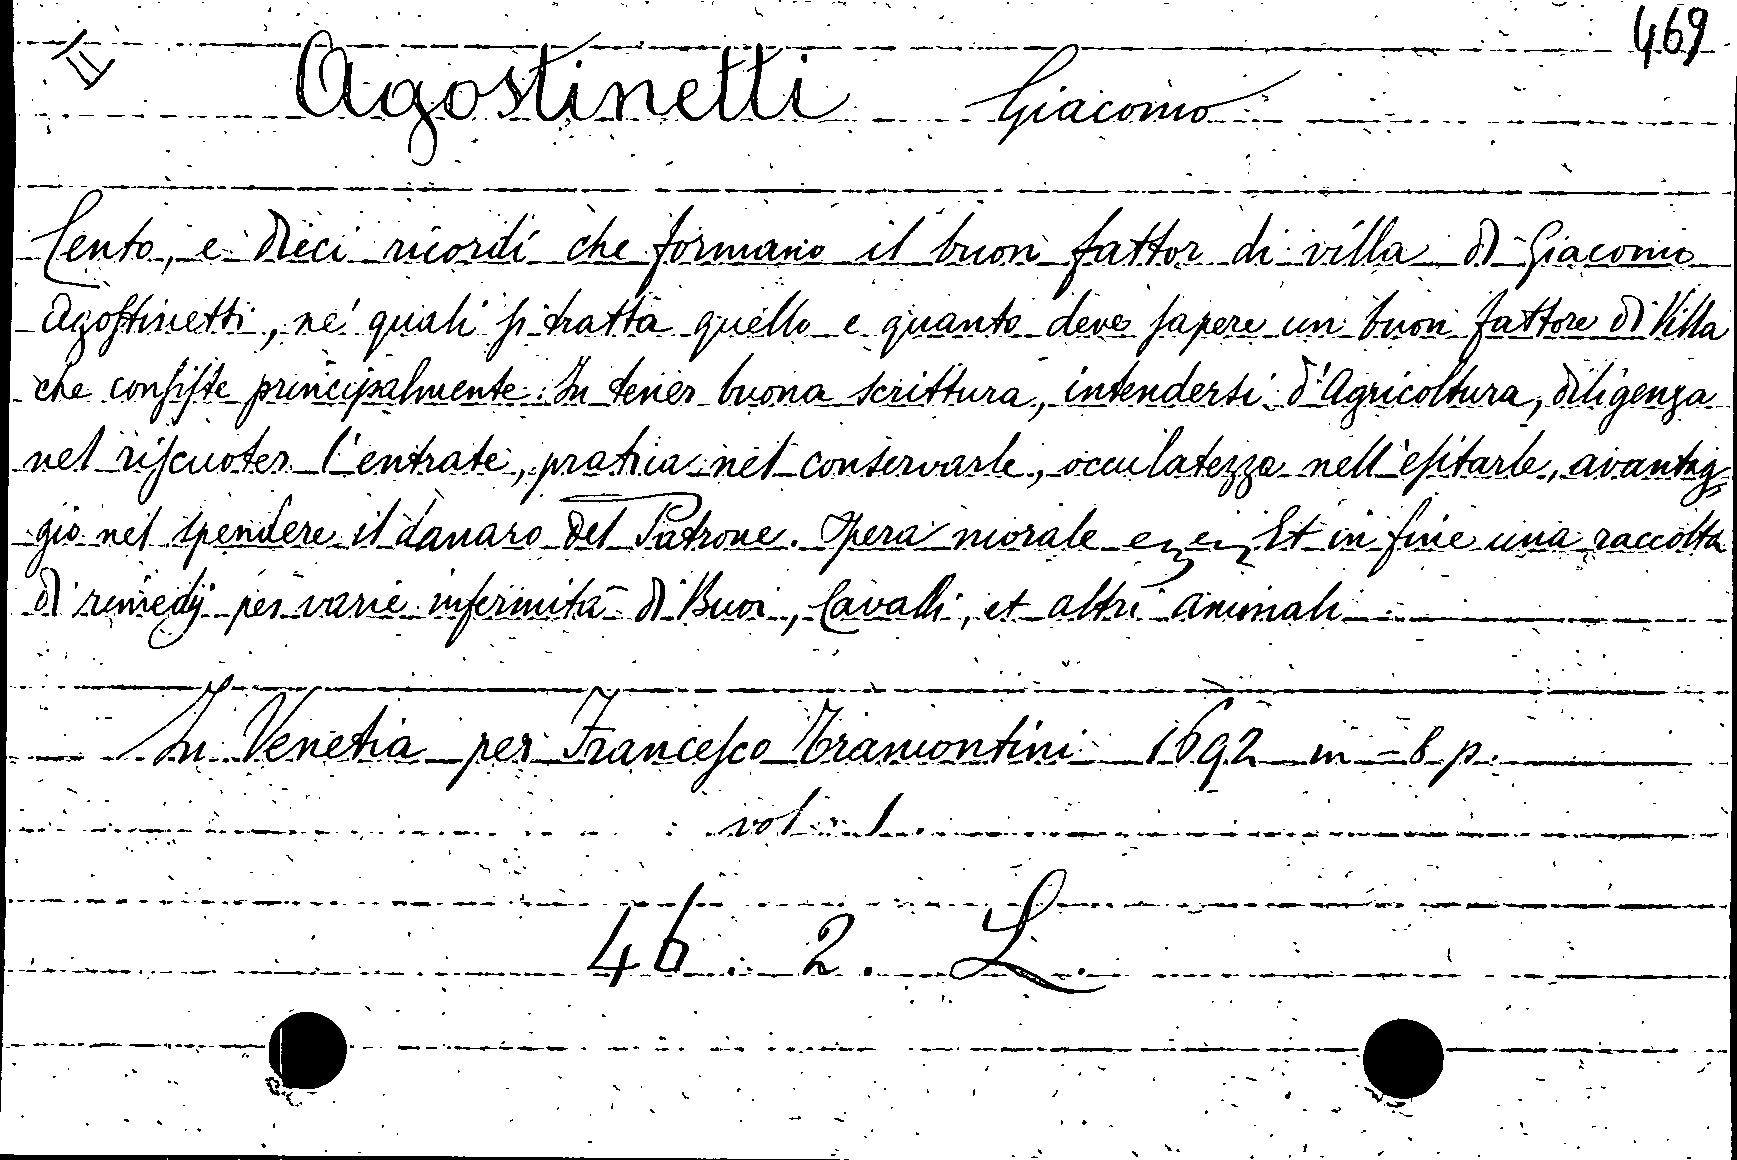 469
II
Agostinetti Giacomo
Cento, e dieci ricordi che formano il buon fattor di villa di Giacomo
Agoſtinetti, ne' quali ſi tratta quello e quanto deve ſapere un buon fattore di Villa
che conſiſte principalmente. In tener buona scrittura, intendersi d'Agricoltura, diligenza
nel riſcuoter l'entrate, pratica nel conservarle, occulatezza nell'eſitarle, avantag-
gio nel spendere il danaro del Patrone. Opera morale Et in fine una raccolta
di remedij per varie infermità di Buoi, Cavalli, et altri animali
In Venetia per Franceſco Tramontini 1692 in-8 p.
vol. 1.
46. 2. L.